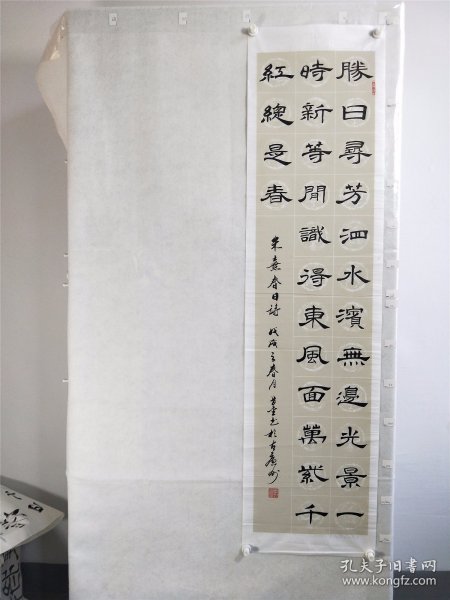 勝日尋芳泗水濱無邊光景一
時新等閒識得東風面萬紫千
紅緫是春
朱熹春日詩 戊戌之春月 書於
孔夫子旧书网
www.kongfz.com